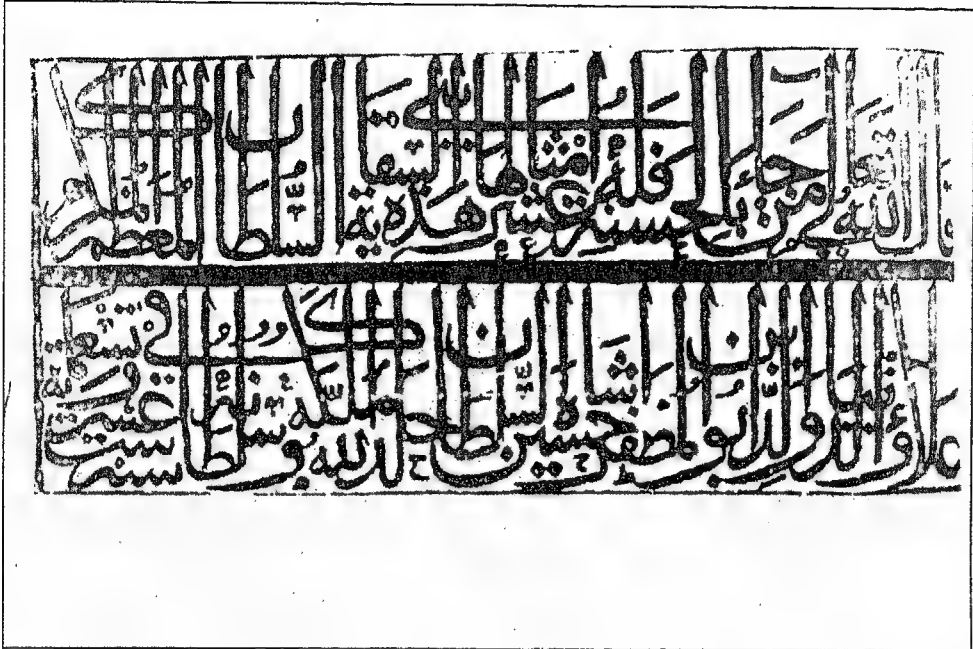 قال الله تعالى من جاء بالحسنة فله عشر أمثالها بنى هذه السقاية السلطان المعظم المكرم
علاء الدنيا والدين أبو المظفر حسين شاه السلطان خلد الله ملكه وسلطانه في سنة ست عشر وتسعمائة